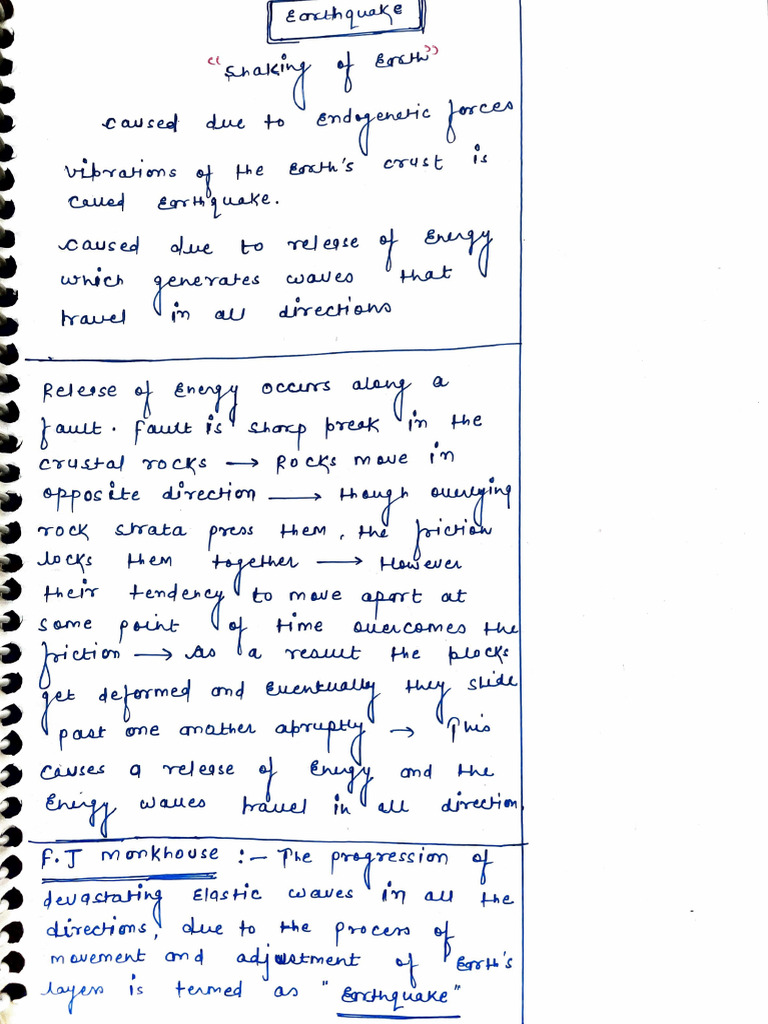 Earthquake
"Shaking of Earth"
caused due to Endogenetic forces
vibrations of the Earth's crust is
called Earthquake.
caused due to release of Energy
which generates waves that
travel in all directions
Release of Energy occurs along a
fault. fault is sharp break in the
crustal rocks → Rocks move in
opposite direction → though overlying
rock strata press them, the friction
locks them together → However
their tendency to move apart at
some point of time overcomes the
friction → As a result the blocks
get deformed and Eventually they slide
past one another abruptly → This
causes a release of Energy and the
Energy waves travel in all direction.
F.J Monkhouse :- The progression of
devastating Elastic waves in all the
directions, due to the process of
movement and adjustment of Earth's
layers is termed as "Earthquake"